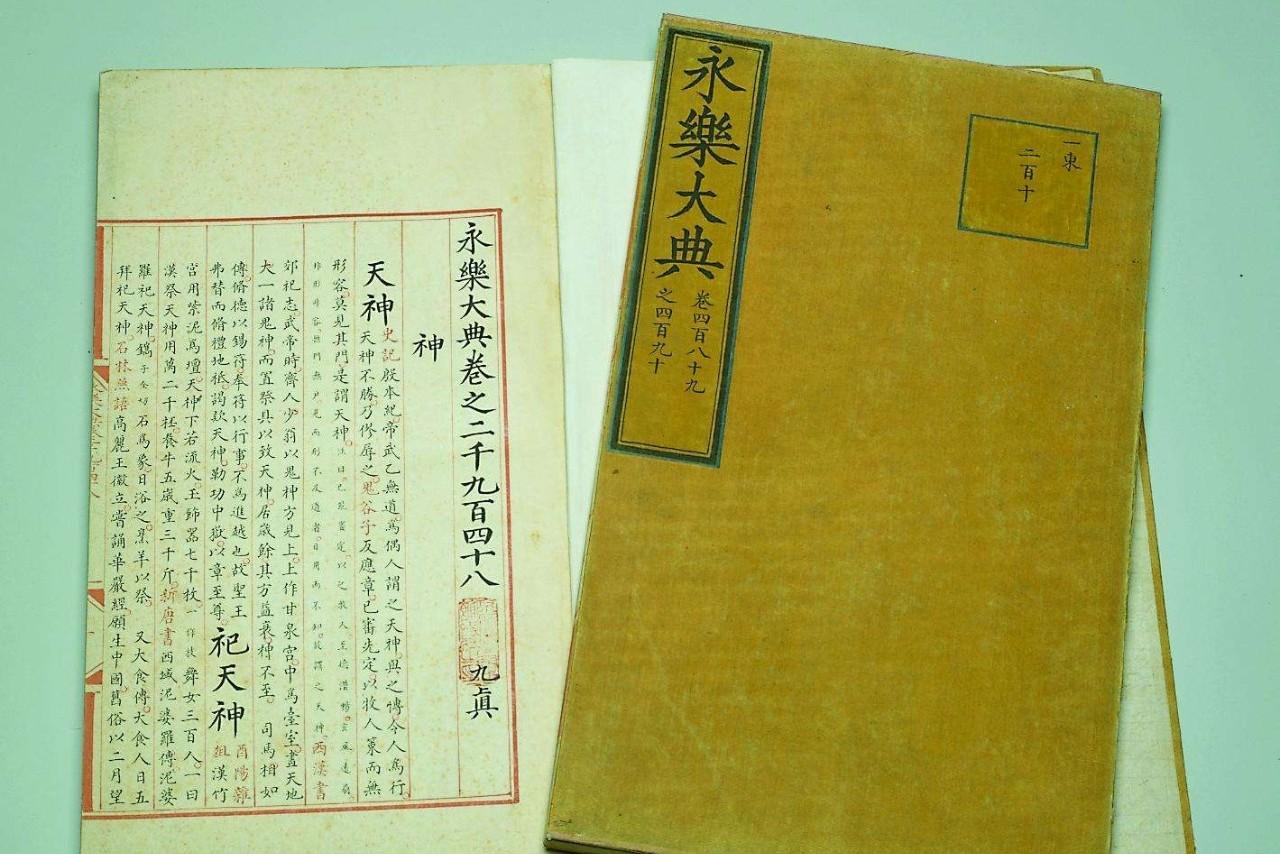 永樂大典卷之二千九百四十八 九真
神
天神
史記殷本紀。帝武乙無道爲偶人謂之天神與之博。令人爲行。
天神不勝。乃僇辱之。鬼谷子反應章。已審先定。以牧人策而無
形容莫見其門。是謂天神。注曰。已既審定。以之牧人。至德潛暢。玄風遠扇。
非形非容。無門無戶。見而形不及道者。日用而不知。故謂之天神。西漢書
郊祀志。武帝時。齊人少翁以鬼神方見上。上作甘泉宫。中爲臺室。畫天地
大一諸鬼神。而置祭具以致天神。居歲餘其方益衰。神不至。司馬相如
傳。脩德以錫符。奉符以行事。不爲進越也。故聖王
弗替。而脩禮地祗。謁欵天神。勒功中嶽。以章至尊。
祀天神
酉陽雜
俎漢竹
宫用紫泥爲壇。天神下若流火。玉飾器七千枚。一作枝舞女三百人。一曰
漢祭天神用萬二千杯。養牛五歲重三千斤。新唐書西域泥婆羅傳泥婆
羅祀天神。鐫子全切石爲象。日浴之。烹羊以祭。又大食傳。大食人日五
拜祀天神。石林燕語高麗王徽立。嘗誦華嚴經。願生中國。舊俗以二月望
永樂大典
卷四百八十九
之四百九十
一東
二百十